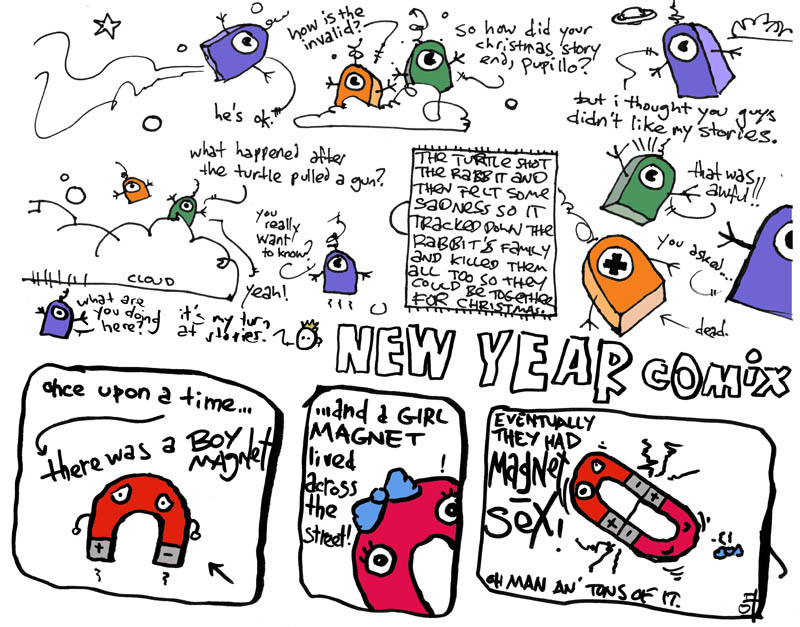 he's ok.
how is the
invalid?
so how did your
christmas story
end, pupillo?
but i thought you guys
didn't like my stories.
what happened after
the turtle pulled a gun?
CLOUD
yeah!
you
really
want
to know?
THE TURTLE SHOT
THE RABBIT AND
THEN FELT SOME
SADNESS SO IT
TRACKED DOWN THE
RABBIT'S FAMILY
AND KILLED THEM
ALL TOO SO THEY
COULD BE TOGETHER
FOR CHRISTMAS.
that was
awful!!
you asked...
dead.
what are
you doing
here?
it's my turn
at stories.
NEW YEAR COMIX
once upon a time...
there was a BOY
MAGNET
...and a GIRL
MAGNET
lived
across
the
street!
!
EVENTUALLY
THEY HAD
MAGNET
SEX!
OH MAN AN' TONS OF IT.